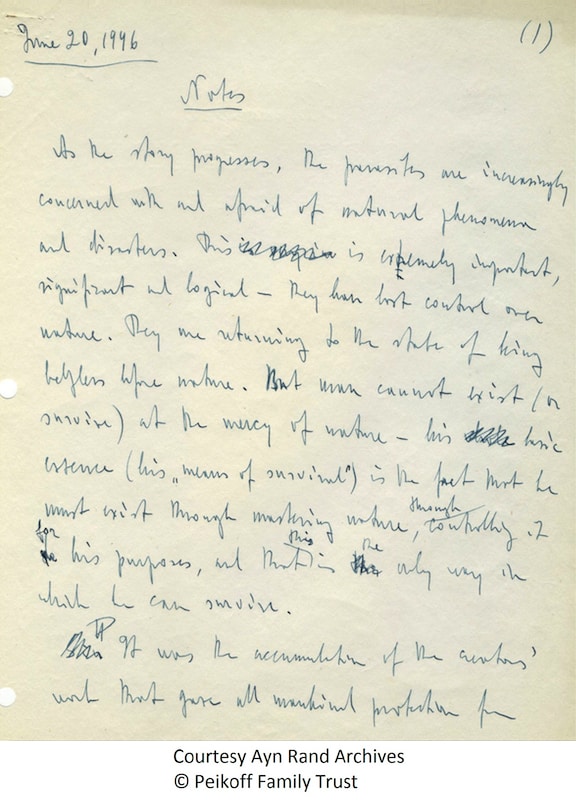 June 20, 1946
(1)
Notes
As the story progresses, the parasites are increasingly
concerned with and afraid of natural phenomena
and disasters. This is extremely important,
significant and logical – they have lost control over
nature. They are returning to the state of being
helpless before nature. But man cannot exist (or
survive) at the mercy of nature – his basic
essence (his „means of survival") is the fact that he
must exist through mastering nature, through controlling it
for his purposes, and that this is the only way in
which he can survive.
It was the accumulation of the creators'
work that gave all mankind protection from
Courtesy Ayn Rand Archives
© Peikoff Family Trust